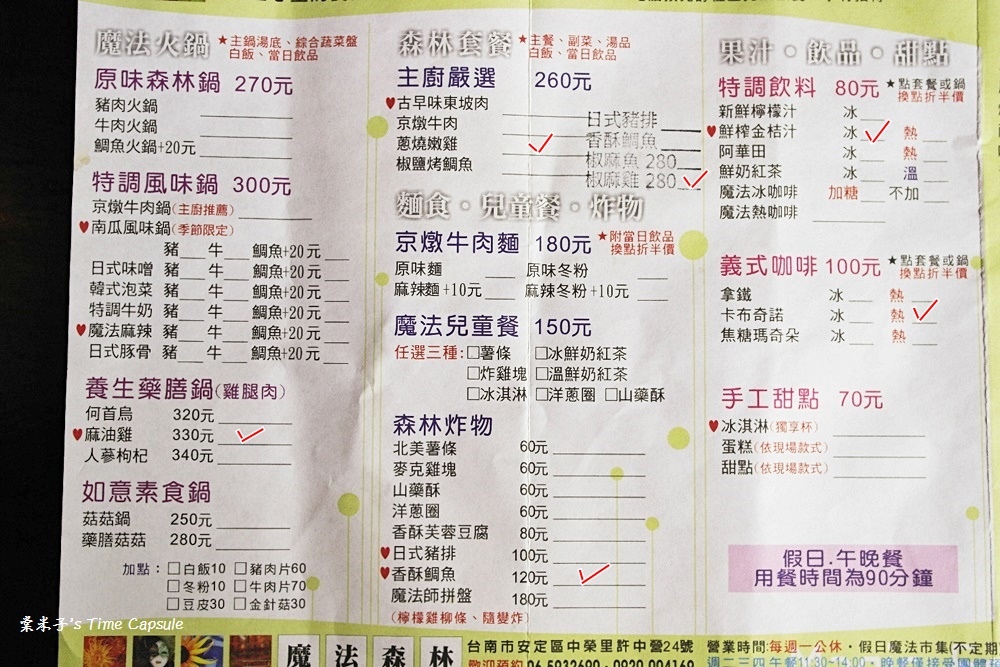 魔法火鍋 ★主鍋湯底、綜合蔬菜盤
白飯、當日飲品
原味森林鍋 270元
豬肉火鍋
牛肉火鍋
鯛魚火鍋+20元
特調風味鍋 300元
京燉牛肉鍋(主廚推薦)
♥南瓜風味鍋(季節限定)
豬 牛 鯛魚+20元
日式味噌 豬 牛 鯛魚+20元
韓式泡菜 豬 牛 鯛魚+20元
特調牛奶 豬 牛 鯛魚+20元
♥魔法麻辣 豬 牛 鯛魚+20元
日式豚骨 豬 牛 鯛魚+20元
養生藥膳鍋(雞腿肉)
何首烏 320元
♥麻油雞 330元
人蔘枸杞 340元
如意素食鍋
菇菇鍋 250元
藥膳菇菇 280元
加點：□白飯10 □豬肉片60
□冬粉10 □牛肉片70
□豆皮30 □金針菇30
森林套餐 ★主餐、副菜、湯品
白飯、當日飲品
主廚嚴選 260元
♥古早味東坡肉
京燉牛肉
蔥燒嫩雞
椒鹽烤鯛魚
日式豬排
香酥鯛魚
椒麻魚 280
椒麻雞 280
麵食・兒童餐・炸物
京燉牛肉麵 180元 ★附當日飲品
換點折半價
原味麵 原味冬粉
麻辣麵+10元 麻辣冬粉+10元
魔法兒童餐 150元
任選三種：□薯條 □冰鮮奶紅茶
□炸雞塊 □溫鮮奶紅茶
□冰淇淋 □洋蔥圈 □山藥酥
森林炸物
北美薯條 60元
麥克雞塊 60元
山藥酥 60元
洋蔥圈 60元
香酥芙蓉豆腐 80元
♥日式豬排 100元
♥香酥鯛魚 120元
魔法師拼盤 180元
(檸檬雞柳條、隨變炸)
果汁・飲品・甜點
特調飲料 80元 ★點套餐或鍋
換點折半價
新鮮檸檬汁 冰
♥鮮榨金桔汁 冰 熱
阿華田 冰 熱
鮮奶紅茶 冰 溫
魔法冰咖啡 加糖 不加
魔法熱咖啡
義式咖啡 100元 ★點套餐或鍋
換點折半價
拿鐵 冰 熱
卡布奇諾 冰 熱
焦糖瑪奇朵 冰 熱
手工甜點 70元
♥冰淇淋(獨享杯)
蛋糕(依現場款式)
甜點(依現場款式)
假日.午晚餐
用餐時間為90分鐘
粟米子's Time Capsule
魔法森林
台南市安定區中榮里許中營24號
歡迎預約 06-5932690・0920-094169
營業時間:每週一公休・假日魔法市集(不定期
週二三四 午餐11:30~14:00・晚餐僅接受團體